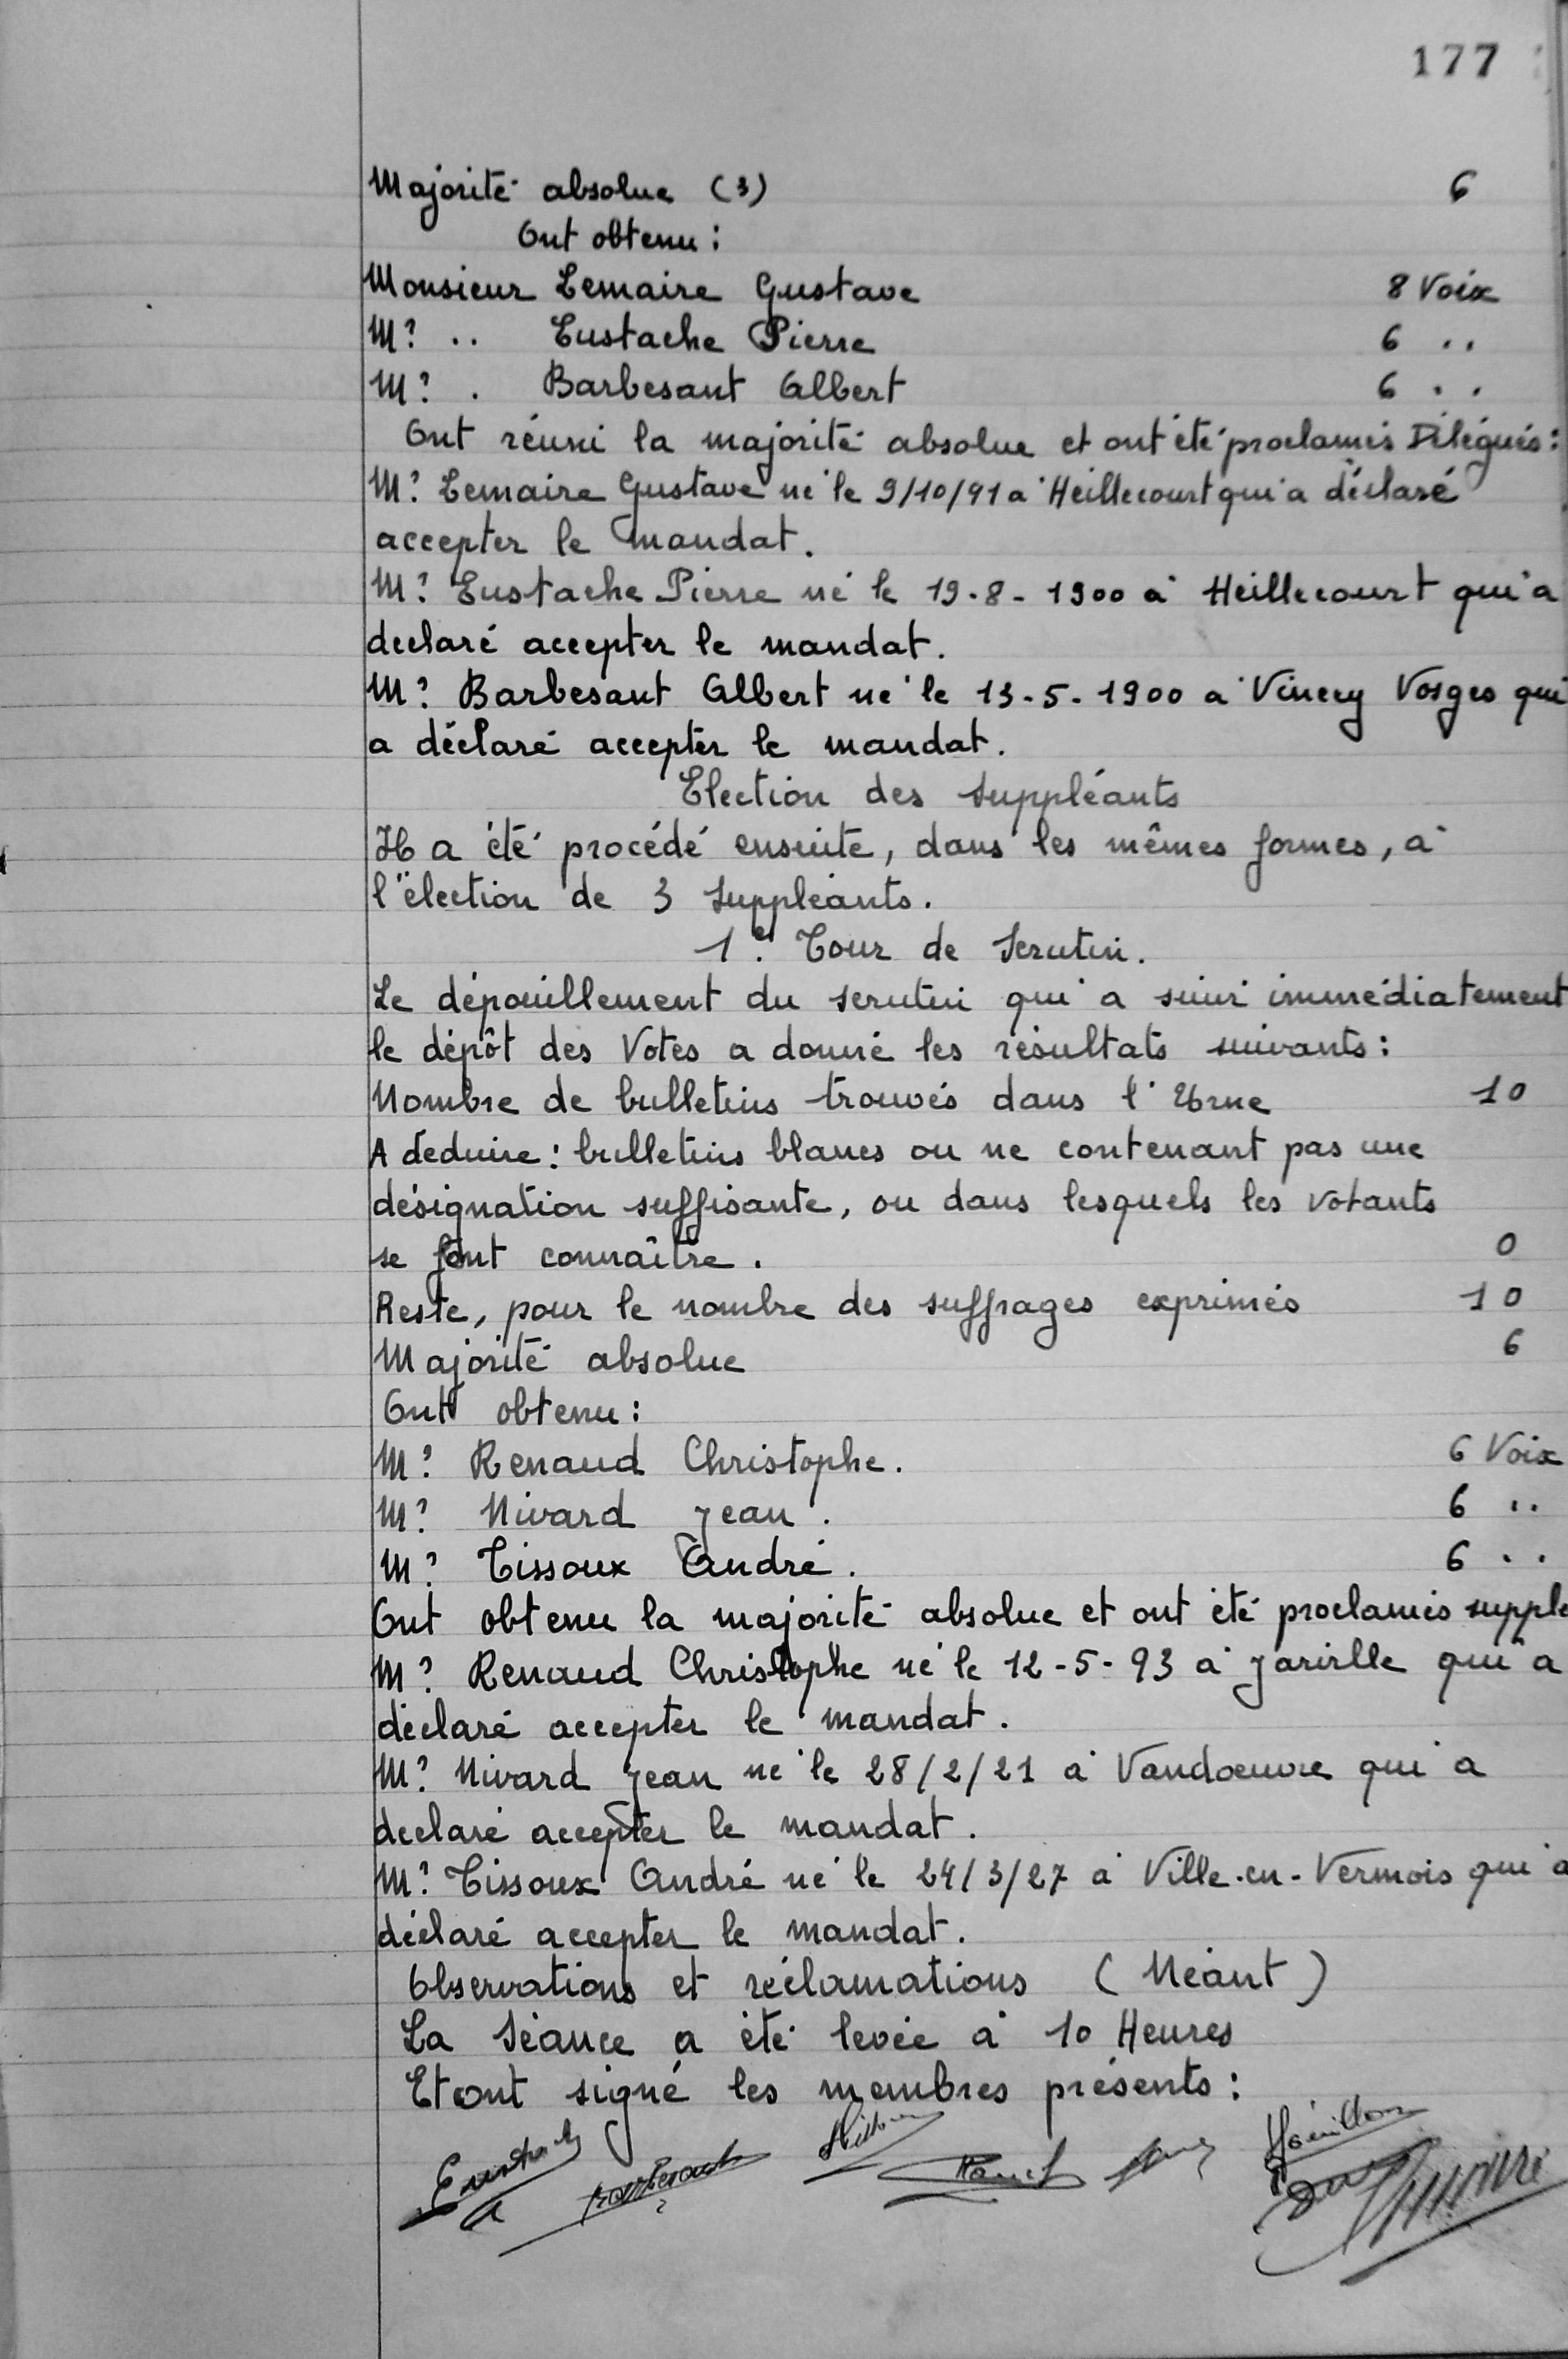 177
Majorité absolue (3) 6
Ont obtenu :
Monsieur Lemaire Gustave 8 Voix
Mr .. Eustache Pierre 6 ..
Mr . Barbesant Albert 6 . .
Ont réuni la majorité absolue et ont été proclamés Délégués :
Mr Lemaire Gustave né le 9/10/91 à Heillecourt qui a déclaré
accepter le mandat.
Mr Eustache Pierre né le 19-8-1900 à Heillecourt qui a
declaré accepter le mandat.
Mr Barbesant Albert né le 13-5-1900 à Vincey Vosges qui
a déclaré accepter le mandat.
Election des suppléants
Il a été procédé ensuite, dans les mêmes formes, à
l'élection de 3 suppléants.
1er Tour de Scrutin.
Le dépouillement du scrutin qui a suivi immédiatement
le dépôt des Votes a donné les résultats suivants :
Nombre de bulletins trouvés dans l'Urne 10
A déduire : bulletins blancs ou ne contenant pas une
désignation suffisante, ou dans lesquels les votants
se font connaître. 0
Reste, pour le nombre des suffrages exprimés 10
Majorité absolue 6
Ont obtenu :
Mr Renaud Christophe. 6 Voix
Mr Nivard Jean. 6 ..
Mr Tissoux André. 6 ..
Ont obtenu la majorité absolue et ont été proclamés supplé
Mr Renaud Christophe né le 12-5-93 à Jarville qui a
déclaré accepter le mandat.
Mr Nivard Jean né le 28/2/21 à Vandoeuvre qui a
declaré accepter le mandat.
Mr Tissoux André né le 24/3/27 à Ville-en-Vermois qui a
déclaré accepter le mandat.
Observations et réclamations (Néant)
La Séance a été levée à 10 Heures
Et ont signé les membres présents :
Eustache Barbesant